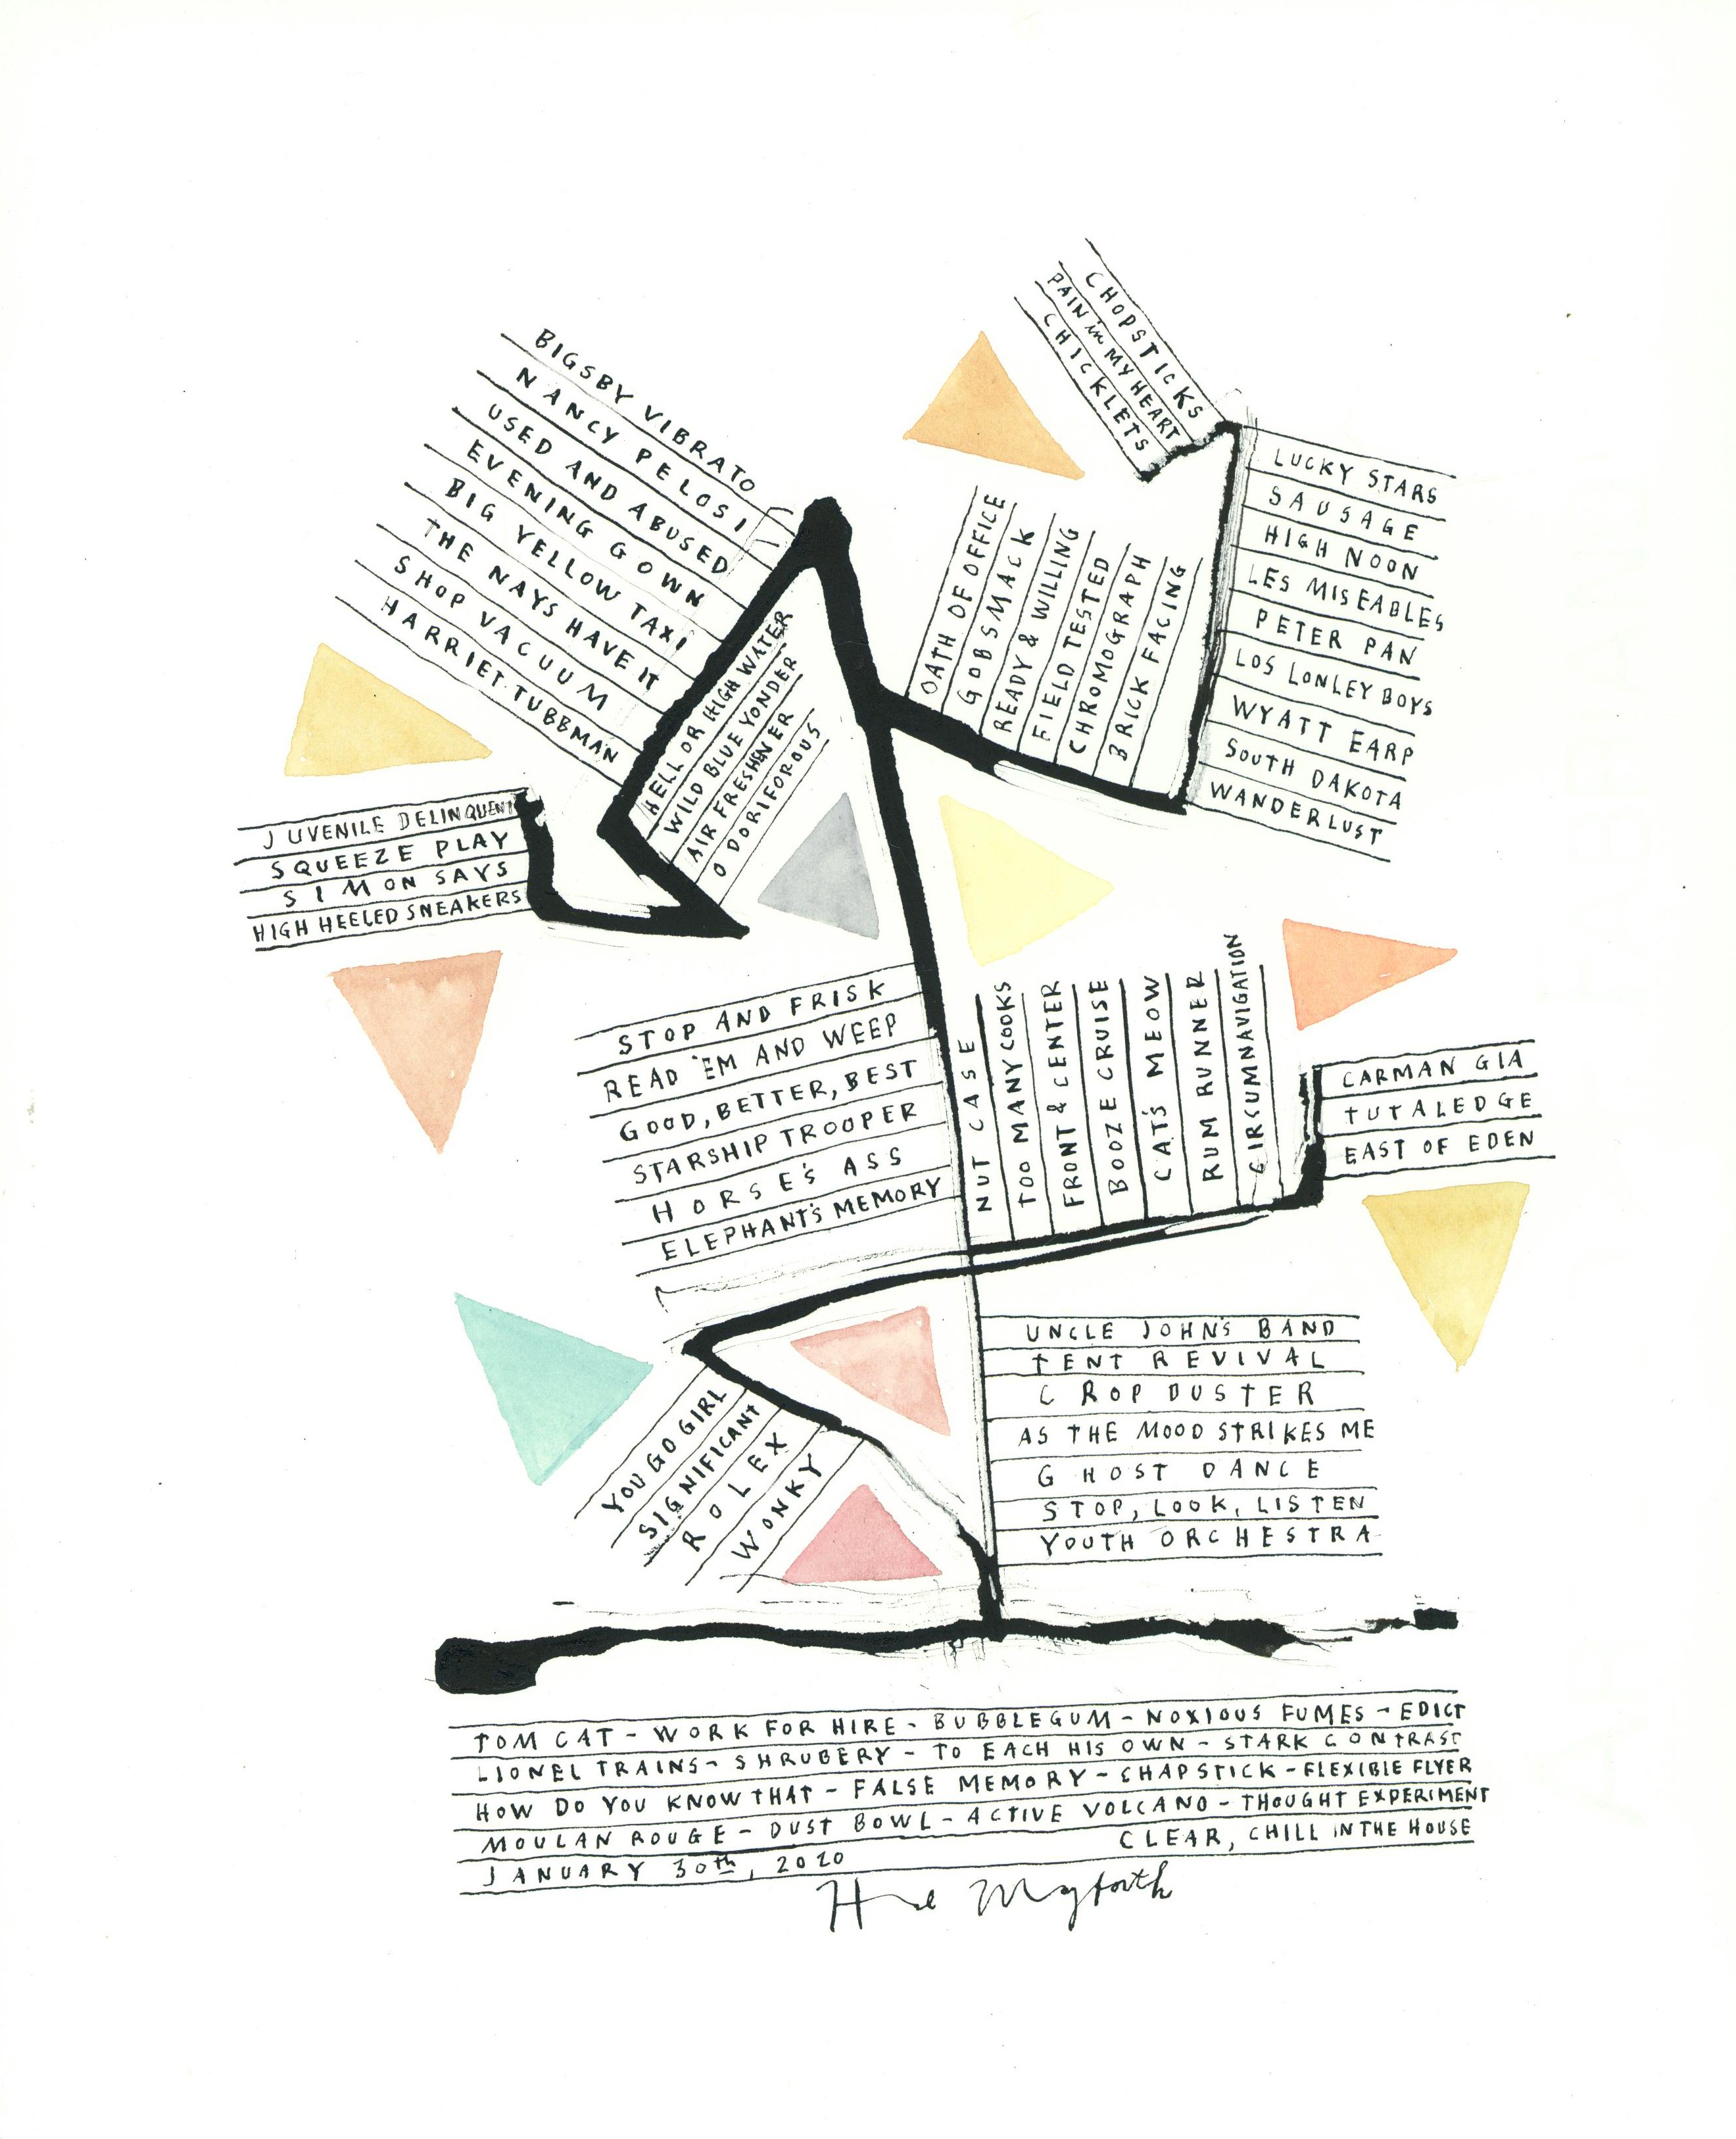 CHOPSTICKS
PAIN in MY HEART
CHICKLETS
BIGSBY VIBRATO
NANCY PELOSI
USED AND ABUSED
EVENING GOWN
BIG YELLOW TAXI
THE NAYS HAVE IT
SHOP VACUUM
HARRIET TUBBMAN
LUCKY STARS
SAUSAGE
HIGH NOON
LES MISEABLES
PETER PAN
LOS LONLEY BOYS
WYATT EARP
SOUTH DAKOTA
WANDERLUST
OATH OF OFFICE
GOBSMACK
READY & WILLING
FIELD TESTED
CHROMOGRAPH
BRICK FACING
HELL OR HIGH WATER
WILD BLUE YONDER
AIR FRESHENER
ODORIFOROUS
JUVENILE DELINQUENT
SQUEEZE PLAY
SIMON SAYS
HIGH HEELED SNEAKERS
STOP AND FRISK
READ 'EM AND WEEP
GOOD, BETTER, BEST
STARSHIP TROOPER
HORSE'S ASS
ELEPHANT'S MEMORY
NUT CASE
TOO MANY COOKS
FRONT & CENTER
BOOZE CRUISE
CAT'S MEOW
RUM RUNNER
CIRCUMNAVIGATION
CARMAN GIA
TUTALEDGE
EAST OF EDEN
UNCLE JOHN'S BAND
TENT REVIVAL
CROP DUSTER
AS THE MOOD STRIKES ME
GHOST DANCE
STOP, LOOK, LISTEN
YOUTH ORCHESTRA
YOU GO GIRL
SIGNIFICANT
ROLEX
WONKY
TOM CAT - WORK FOR HIRE - BUBBLEGUM - NOXIOUS FUMES - EDICT
LIONEL TRAINS - SHRUBERY - TO EACH HIS OWN - STARK CONTRAST
HOW DO YOU KNOW THAT - FALSE MEMORY - CHAPSTICK - FLEXIBLE FLYER
MOULAN ROUGE - DUST BOWL - ACTIVE VOLCANO - THOUGHT EXPERIMENT
JANUARY 30th, 2020 CLEAR, CHILL IN THE HOUSE